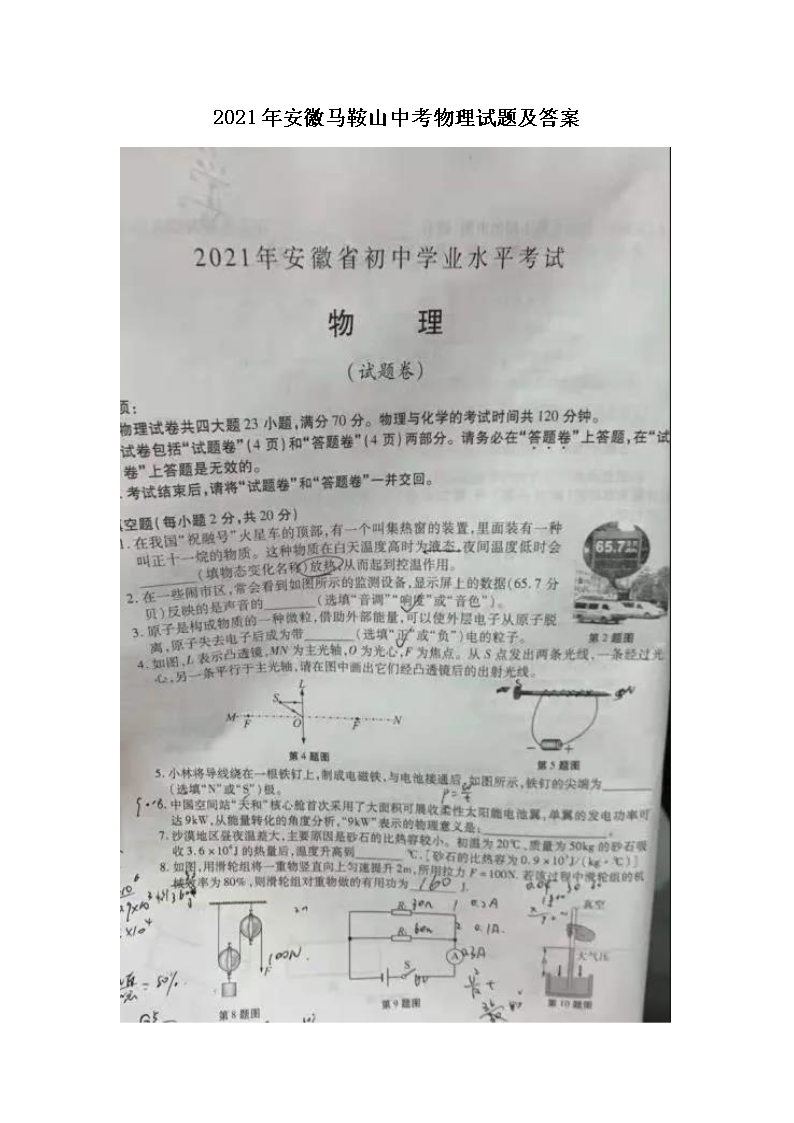 2021年安徽马鞍山中考物理试题及答案
2021年安徽省初中学业水平考试
物 理
(试题卷)
项：
物理试卷共四大题23小题，满分70分。物理与化学的考试时间共120分钟。
试卷包括“试题卷”(4页)和“答题卷”(4页)两部分。请务必在“答题卷”上答题，在“试
卷”上答题是无效的。
考试结束后，请将“试题卷”和“答题卷”一并交回。
空题(每小题2分，共20分)
1. 在我国“祝融号”火星车的顶部，有一个叫集热窗的装置，里面装有一种
叫正十一烷的物质。这种物质在白天温度高时为液态，夜间温度低时会
______(填物态变化名称)放热，从而起到控温作用。
65.7
2. 在一些闹市区，常会看到如图所示的监测设备，显示屏上的数据(65.7分
贝)反映的是声音的______(选填“音调”“响度”或“音色”)。
3. 原子是构成物质的一种微粒，借助外部能量，可以使外层电子从原子脱
离，原子失去电子后成为带______(选填“正”或“负”)电的粒子。
第2题图
4. 如图，L表示凸透镜，MN为主光轴，O为光心，F为焦点。从S点发出两条光线，一条经过光
心，另一条平行于主光轴，请在图中画出它们经凸透镜后的出射光线。
L
S
S N
M F O F N
- +
第4题图
第5题图
5. 小林将导线绕在一根铁钉上，制成电磁铁，与电池接通后，如图所示，铁钉的尖端为______
(选填“N”或“S”)极。
6. 中国空间站“天和”核心舱首次采用了大面积可展收柔性太阳能电池翼，单翼的发电功率可
达9kW，从能量转化的角度分析，“9kW”表示的物理意义是：______。
7. 沙漠地区昼夜温差大，主要原因是砂石的比热容较小。初温为20℃、质量为50kg的砂石吸
收3.6×10⁵J的热量后，温度升高到______℃.[砂石的比热容为0.9×10³J/(kg·℃)]
8. 如图，用滑轮组将一重物竖直向上匀速提升2m，所用拉力F=100N. 若该过程中滑轮组的机
械效率为80%，则滑轮组对重物做的有用功为 160 J.
R₁ 30Ω 0.2A
R₂ 60Ω 0.1A
A 0.3A
S
真空
大气压
h
100N
F
= 80%
第8题图
第9题图
第10题图